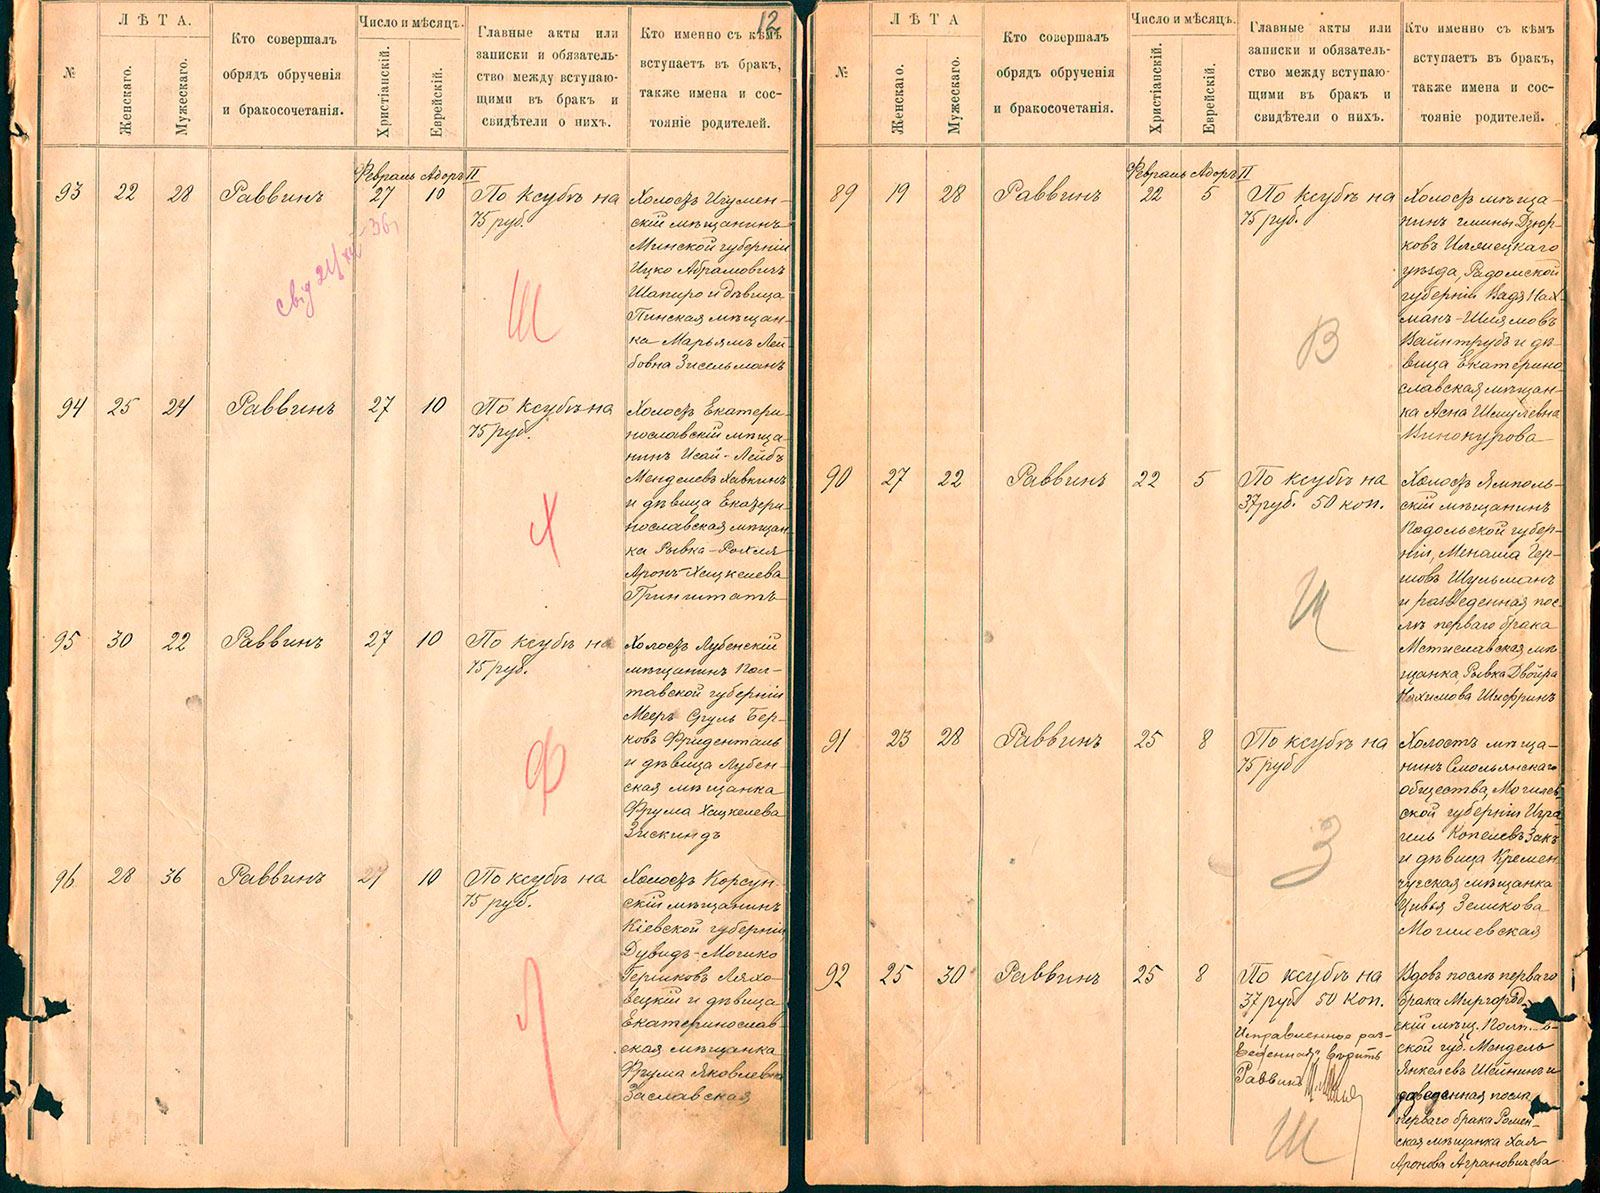 12
№
ЛѢТА.
Женскаго.
Мужескаго.
Кто совершалъ
обрядъ обрученія
и бракосочетанія.
Число и мѣсяцъ.
Христіанскій.
Еврейскій.
Главные акты или
записки и обязатель-
ство между вступаю-
щими въ бракъ и
свидѣтели о нихъ.
Кто именно съ кѣмъ
вступаетъ въ бракъ,
также имена и сос-
тояніе родителей.
Февраль Адоръ II
93 22 28 Раввинъ 27 10
По ксубѣ на
75 руб.
Холостъ Игумен-
скій мѣщанинъ
Минской губерніи
Ицко Абрамовичъ
Шапиро и дѣвица
Пинская мѣщан-
ка Марьямъ Лей
бовна Зисельманъ
Ш
94 25 24 Раввинъ 27 10
По ксубѣ на
75 руб.
Холостъ Екатери-
нославскій мѣща-
нинъ Исай-Лейбъ
Менделевъ Хавкинъ
и дѣвица Екатери-
нославская мѣщан-
ка Рывка-Рохля
Аронъ-Хацкелева
Гринштатъ
Х
95 30 22 Раввинъ 27 10
По ксубѣ на
75 руб.
Холостъ Лубенскій
мѣщанинъ Пол-
тавской губерніи
Мееръ Сруль Бер-
ковъ Фриденталь
и дѣвица Лубен-
ская мѣщанка
Фрума Хацкелева
Зискиндъ
Ф
96 28 36 Раввинъ 27 10
По ксубѣ на
75 руб.
Холостъ Корсун-
скій мѣщанинъ
Кіевской губерніи
Дувидъ-Мошко
Гершковъ Ляхо-
вецкій и дѣвица
Екатеринослав-
ская мѣщанка
Фрума Яковлевна
Заславская
Л
№
ЛѢТА
Женскаго.
Мужескаго.
Кто совершалъ
обрядъ обрученія
и бракосочетанія.
Число и мѣсяцъ.
Христіанскій.
Еврейскій.
Главные акты или
записки и обязатель-
ство между вступаю-
щими въ бракъ и
свидѣтели о нихъ.
Кто именно съ кѣмъ
вступаетъ въ бракъ,
также имена и сос-
тояніе родителей.
Февраль Адоръ II
89 19 28 Раввинъ 22 5
По ксубѣ на
75 руб.
Холостъ мѣща-
нинъ гмины Дзюр-
ковъ Илжецкаго
уѣзда, Радомской
губерніи Вадя Нах-
манъ-Шлямовъ
Вайнтрубъ и дѣ-
вица Екатерино
славская мѣщан-
ка Асна Шмулевна
Винокурова
В
90 27 22 Раввинъ 22 5
По ксубѣ на
37 руб. 50 коп.
Холостъ Ямполь-
скій мѣщанинъ
Подольской губер-
ніи, Менаша Гер-
шовъ Шульманъ
и разведенная пос-
лѣ перваго брака
Мстиславская мѣ-
щанка, Рывка Двойра
Нахимова Шифринъ
Ш
91 23 28 Раввинъ 25 8
По ксубѣ на
75 руб
Холостъ мѣща-
нинъ Смольянскаго
общества, Могилев-
ской губерніи Изра-
иль Копелевъ Закъ
и дѣвица Кремен
чугская мѣщанка
Цивья Зеликова
Могилевская
З
92 25 30 Раввинъ 25 8
По ксубѣ на
37 руб 50 коп.
Исправленное раз-
веденная, вѣрить
Раввинъ
Вдовъ послѣ перваго
брака Миргород-
скій мѣщ.
ской губ. Мендель
Янкелевъ Шейнинъ и
разведенная послѣ
перваго брака Ромен-
ская мѣщанка Хая
Аронова Аграновичева
Ш